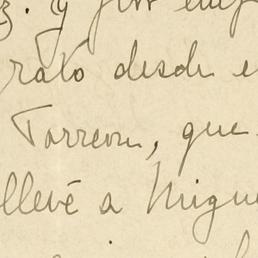 z. y por
rato desde e
Torreon, que
llevé a Migue